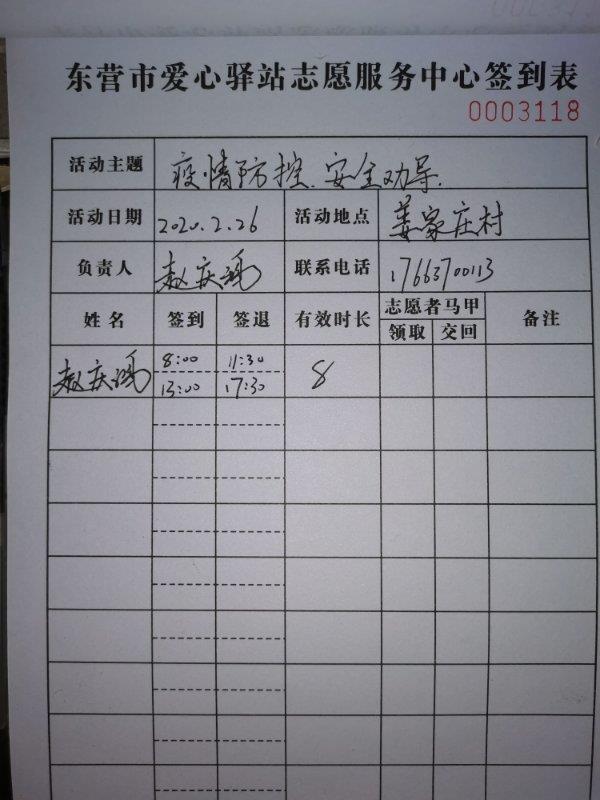 东营市爱心驿站志愿服务中心签到表
0003118
活动主题 疫情防控、安全劝导.
活动日期 2020.2.26 活动地点 姜家庄村
负责人 赵庆鸿 联系电话 17663700113
姓名 签到 签退 有效时长 志愿者马甲 备注
领取 交回
赵庆鸿 8:00 11:30 8
13:00 17:30